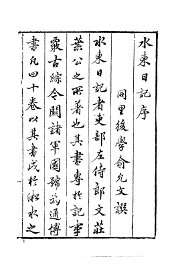 水東日記序
同里後學俞允文撰
水東日記者吏部左侍郎文莊
葉公之所著也其書專於記事
覈古綜今關諸軍國號為通博
書凡四十卷以其書成於淞水之